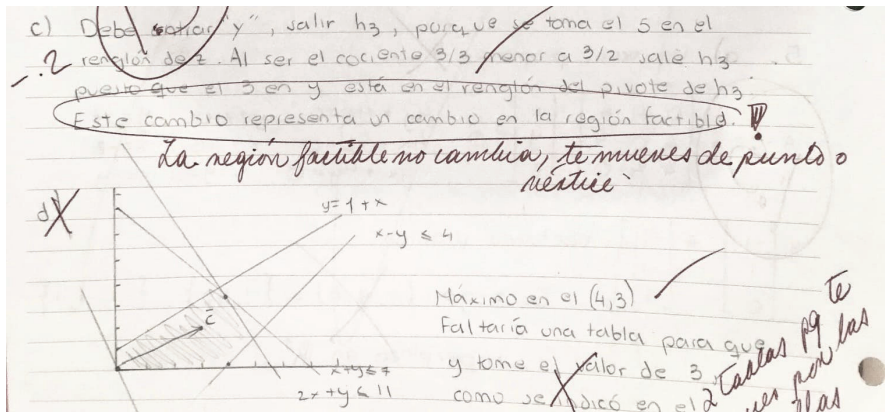 c) Debe entrar "y", salir h3, porque se toma el 5 en el
-.2 renglón de z. Al ser el cociente 3/3 menor a 3/2 sale h3
puesto que el 3 en y está en el renglón del pivote de h3.
Este cambio representa un cambio en la región factible.
La región factible no cambia, te mueves de punto o
vértice
d)
y=1+x
x-y≤4
c
Máximo en el (4,3)
Faltaría una tabla para que
y tome el valor de 3
como se indicó en el
x+y≤7
2x+y≤11
2 tablas pq te
por las